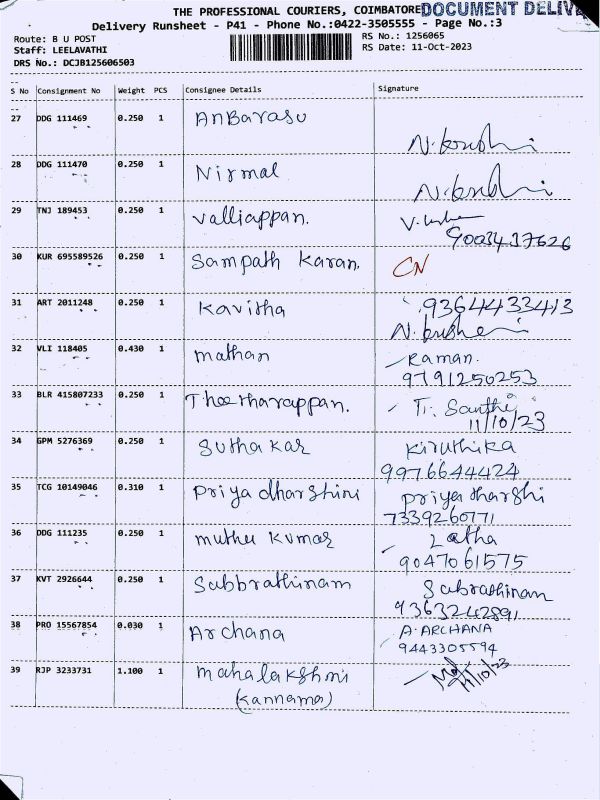 THE PROFESSIONAL COURIERS, COIMBATORE DOCUMENT DELIV
Delivery Runsheet - P41 - Phone No.:0422-3505555 - Page No.:3
Route: B U POST
RS No.: 1256065
Staff: LEELAVATHI
RS Date: 11-Oct-2023
DRS No.: DCJB125606503
S No Consignment No Weight PCS Consignee Details Signature
27 DDG 111469 0.250 1 Anbarasu
28 DDG 111470 0.250 1 Nirmal
29 TNJ 189453 0.250 1 Valliappan.
9003437626
30 KUR 695589526 0.250 1 Sampath Karan. CN
31 ART 2011248 0.250 1 Kavitha 9364433413
32 VLI 118405 0.430 1 mathan Raman.
9791250253
33 BLR 415807233 0.250 1 Theertharappan. T. Santhi
11/10/23
34 GPM 5276369 0.250 1 Suthakar Kiruthika
9976644424
35 TCG 10149046 0.310 1 Priya dharshini Priya tharshi
7339260771
36 DDG 111235 0.250 1 muthu kumar Latha
9047061575
37 KVT 2926644 0.250 1 Subbrathinam Subrathinam
9363242891
38 PRO 15567854 0.030 1 Archana A. ARCHANA
9443305594
39 RJP 3233731 1.100 1 mahalakshmi
11/10/23
(Kannama)